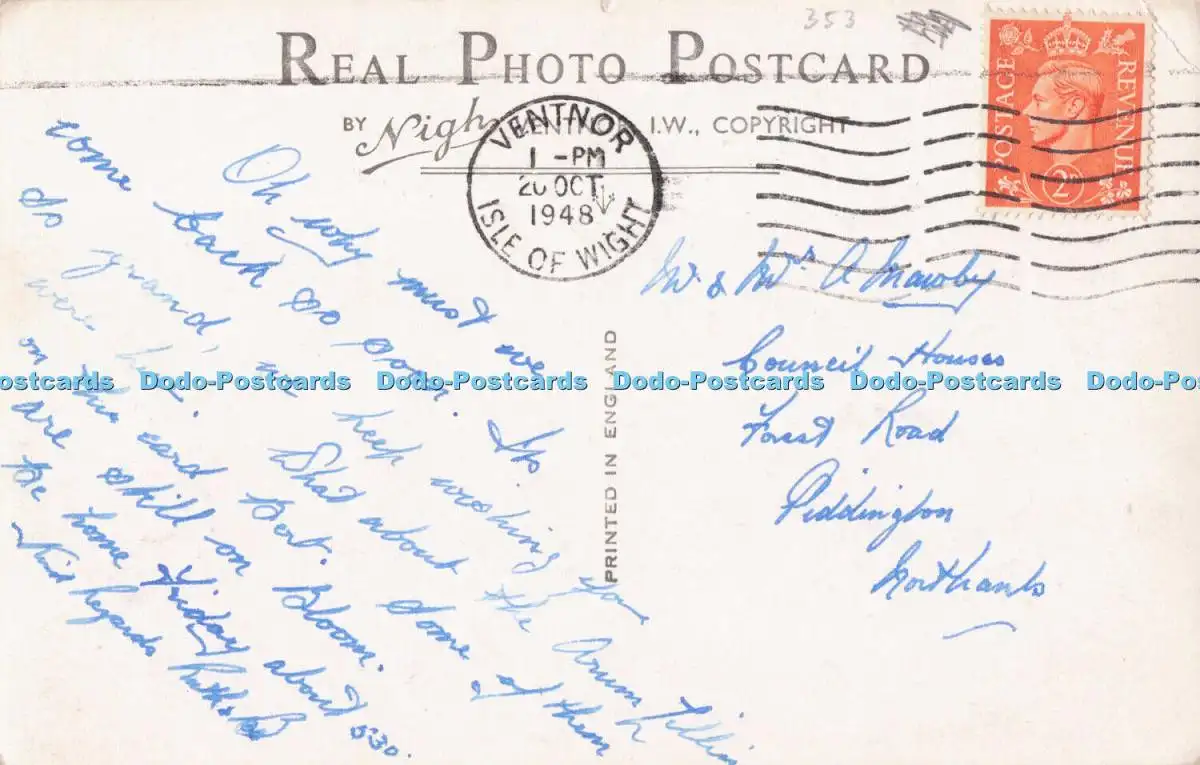 353
REAL PHOTO POSTCARD
BY Nigh VENTNOR, I.W., COPYRIGHT
VENTNOR
1 - PM
20 OCT
1948
ISLE OF WIGHT
POSTAGE REVENUE
2D
Oh why must we
come back so soon. Its
so grand, we keep wishing you
were here. What about the Arum Lillies
on this card Bert. Some of them
are still on Bloom.
Be home Friday about 530.
Kind Regards
PRINTED IN ENGLAND
Mr. & Mrs A Mawby
Council Houses
Forest Road
Piddington
Northants
Dodo-Postcards Dodo-Postcards Dodo-Postcards Dodo-Postcards Dodo-Postcards Dodo-Postcards